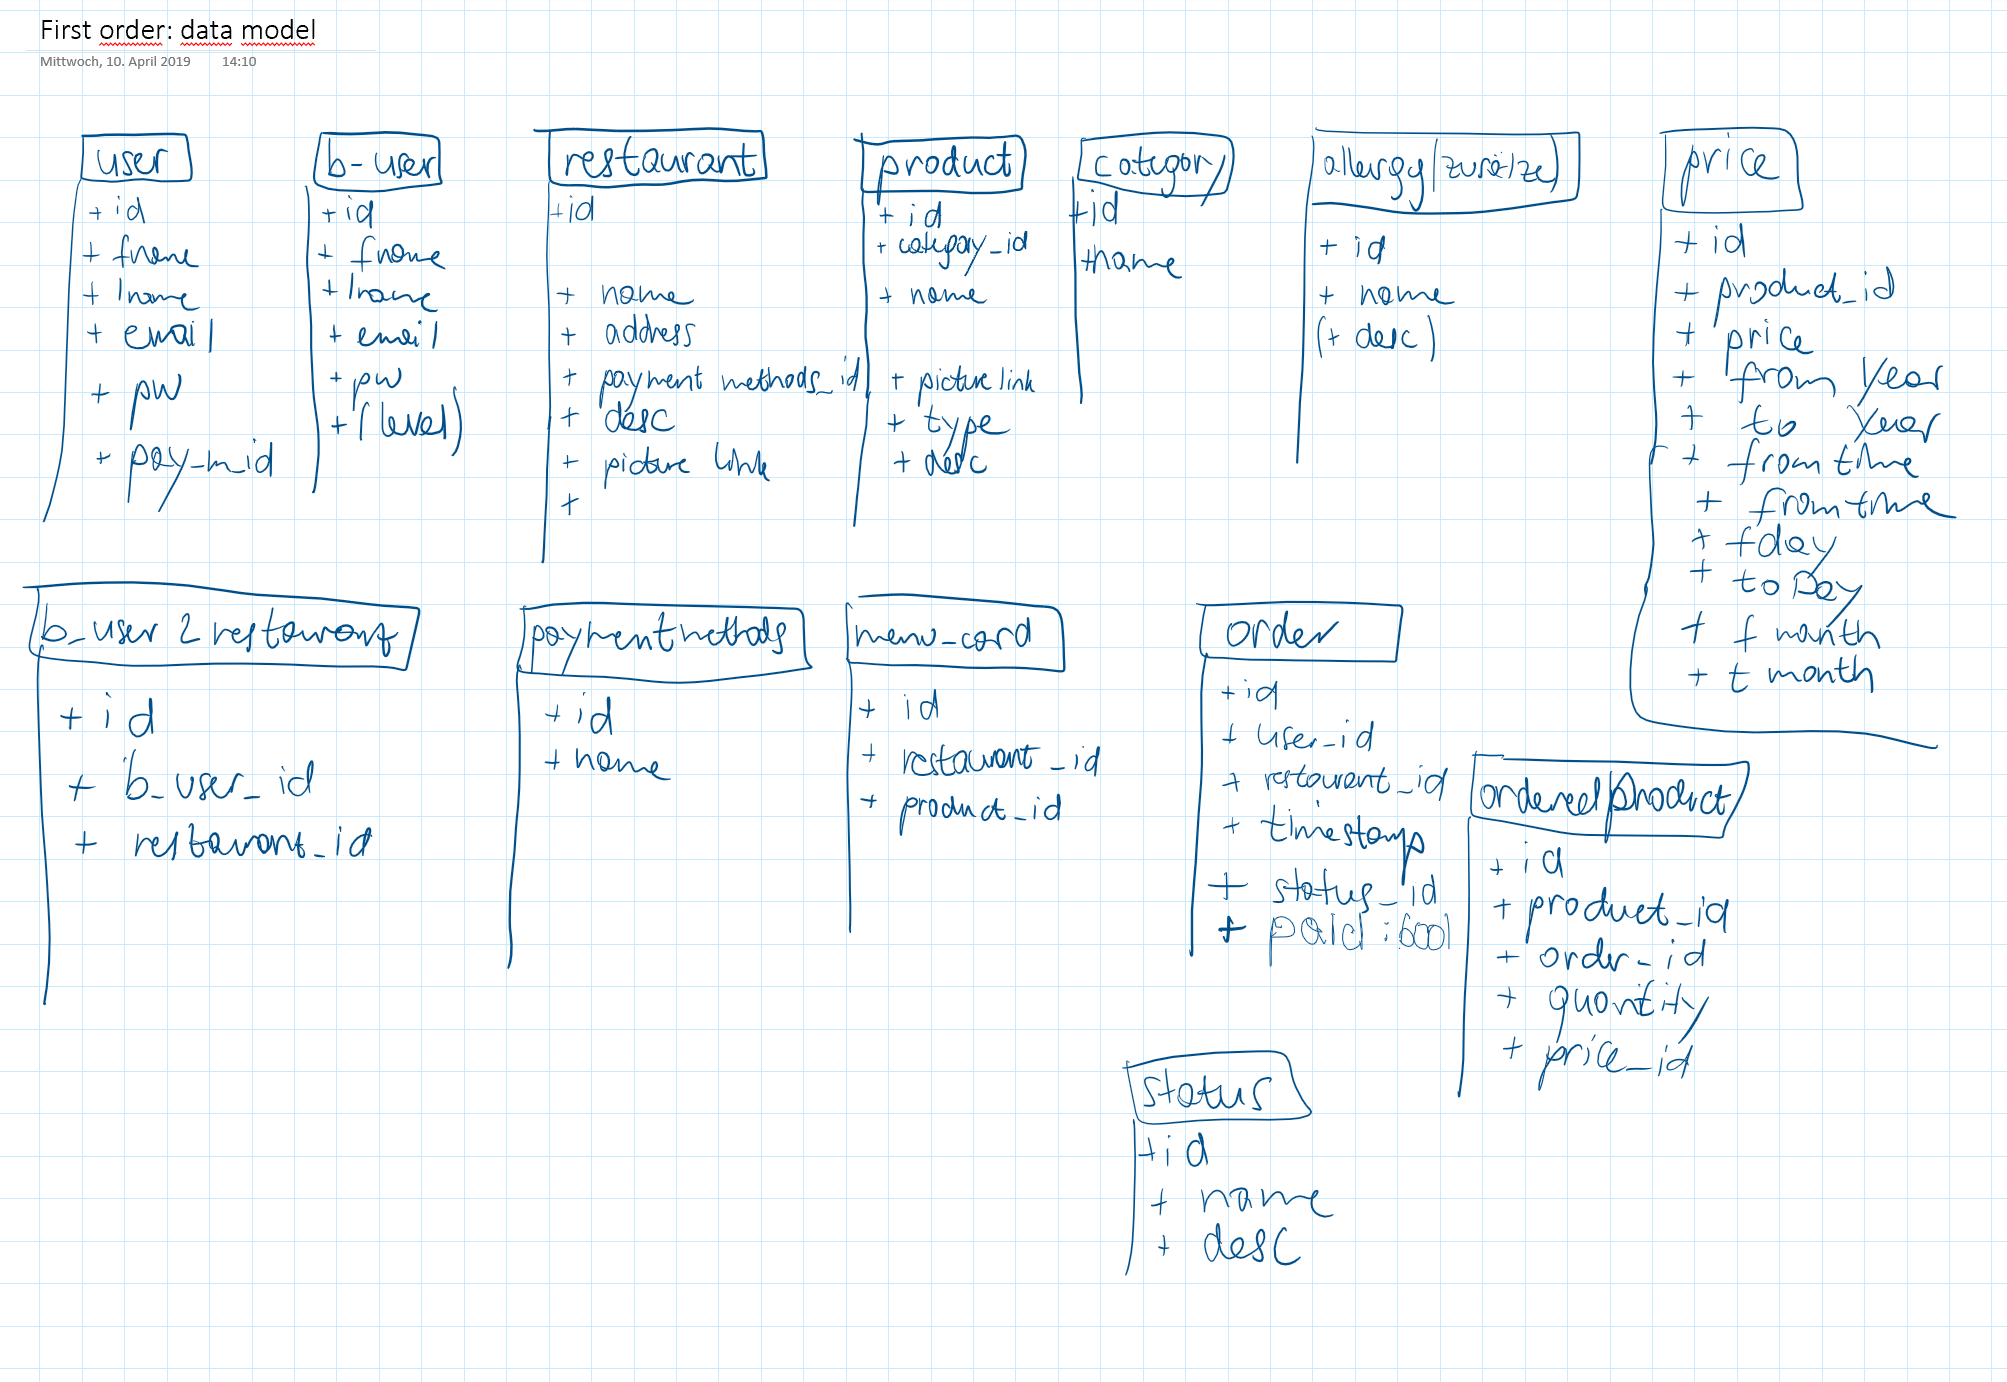 First order: data model
Mittwoch, 10. April 2019 14:10
user
+ id
+ fname
+ lname
+ email
+ pw
+ pay-m_id
b-user
+ id
+ fname
+ lname
+ email
+ pw
+ (level)
restaurant
+id
+ name
+ address
+ payment methods_id
+ desc
+ picture link
+
product
+ id
+ category_id
+ name
+ picture link
+ type
+ desc
category
+id
+name
allergy/zusätze)
+ id
+ name
(+ desc)
price
+ id
+ product_id
+ price
+ from Year
+ to Year
+ from time
+ from time
+ fday
+ to Day
+ f month
+ t month
b_user 2 restaurant
+ id
+ b_user_id
+ restaurant_id
paymentmethods
+ id
+ name
menu-card
+ id
+ restaurant_id
+ product_id
order
+ id
+ user_id
+ restaurant_id
+ timestamp
+ status_id
+ paid : bool
ordered/product
+ id
+ product_id
+ order-id
+ quantity
+ price_id
status
+ id
+ name
+ desc